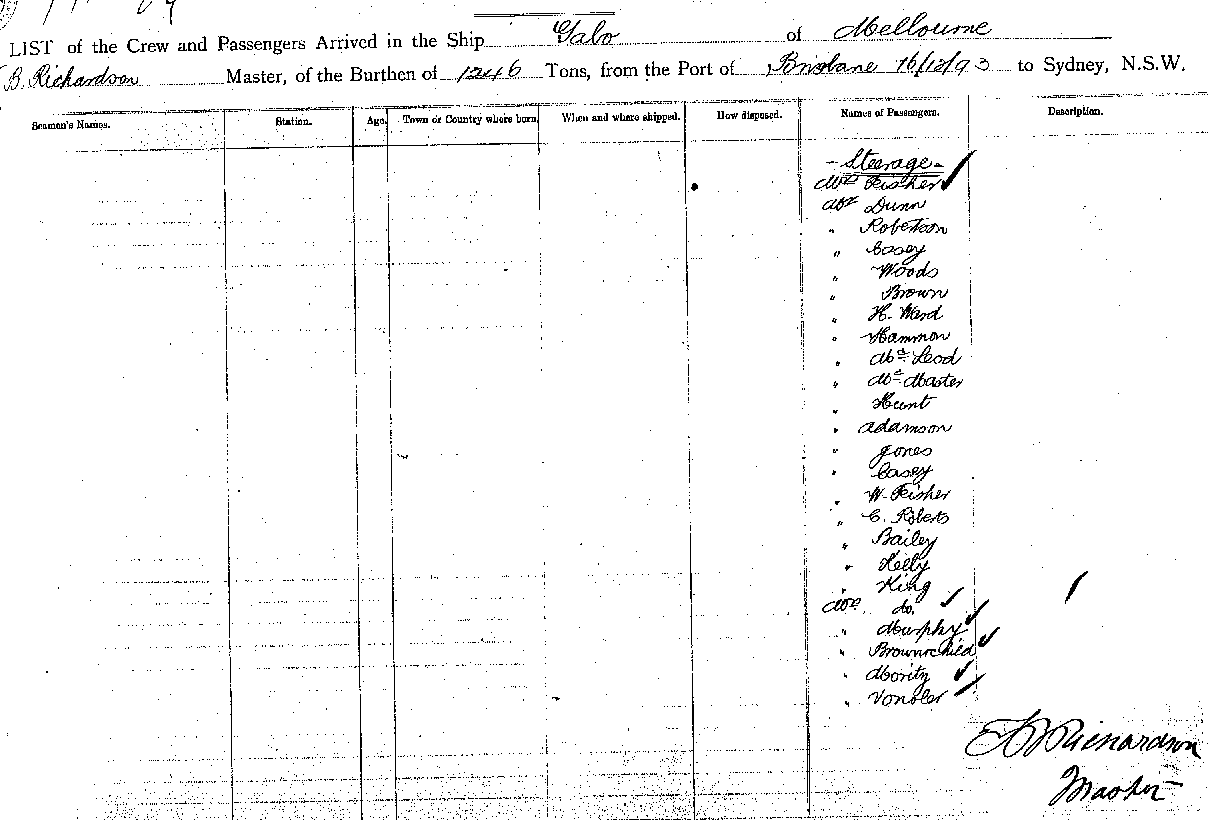 LIST of the Crew and Passengers Arrived in the Ship Gabo of Melbourne
B. Richardson Master, of the Burthen of 1246 Tons, from the Port of Brisbane 16/12/93 to Sydney, N.S.W.
Seamen's Names. Station. Age. Town or Country where born. When and where shipped. How disposed. Names of Passengers. Description.
- Steerage -
Mrs Fisher ✓
Mr Dunn
" Robertson
" Casey
" Woods
" Brown
" H. Ward
" Hammon
" McLeod
" McMaster
" Hunt
" Adamson
" Jones
" Casey
" W. Fisher
" C. Roberts
" Bailey
" Kelly
" King
Mrs do. ✓
" Murphy ✓
" Brown & child ✓
" Moority ✓
" ✓
B Richardson
Master